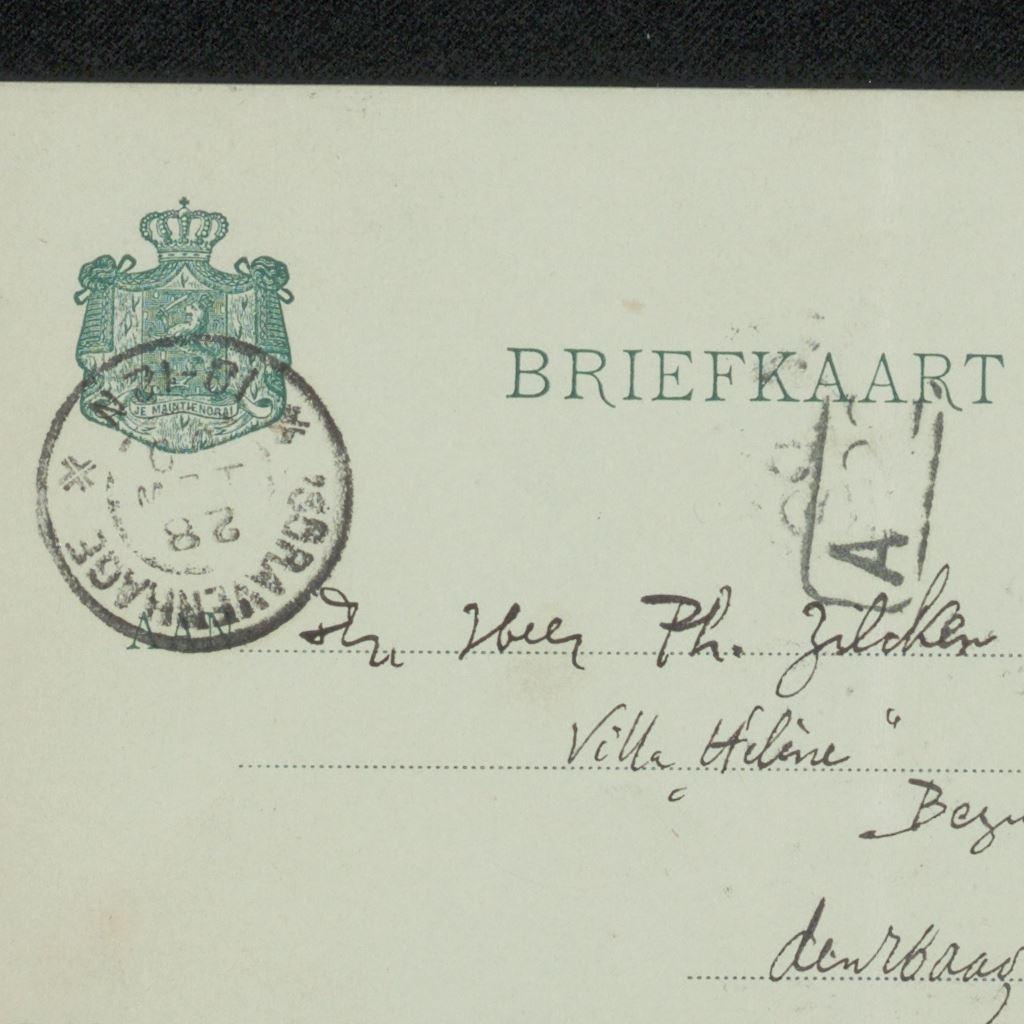 JE MAINTIENDRAI
BRIEFKAART
10-12 N
28
'SGRAVENHAGE
A
AAN Den Heer Ph. Zilcken
Villa „Hélène"
Bezu
den Haag